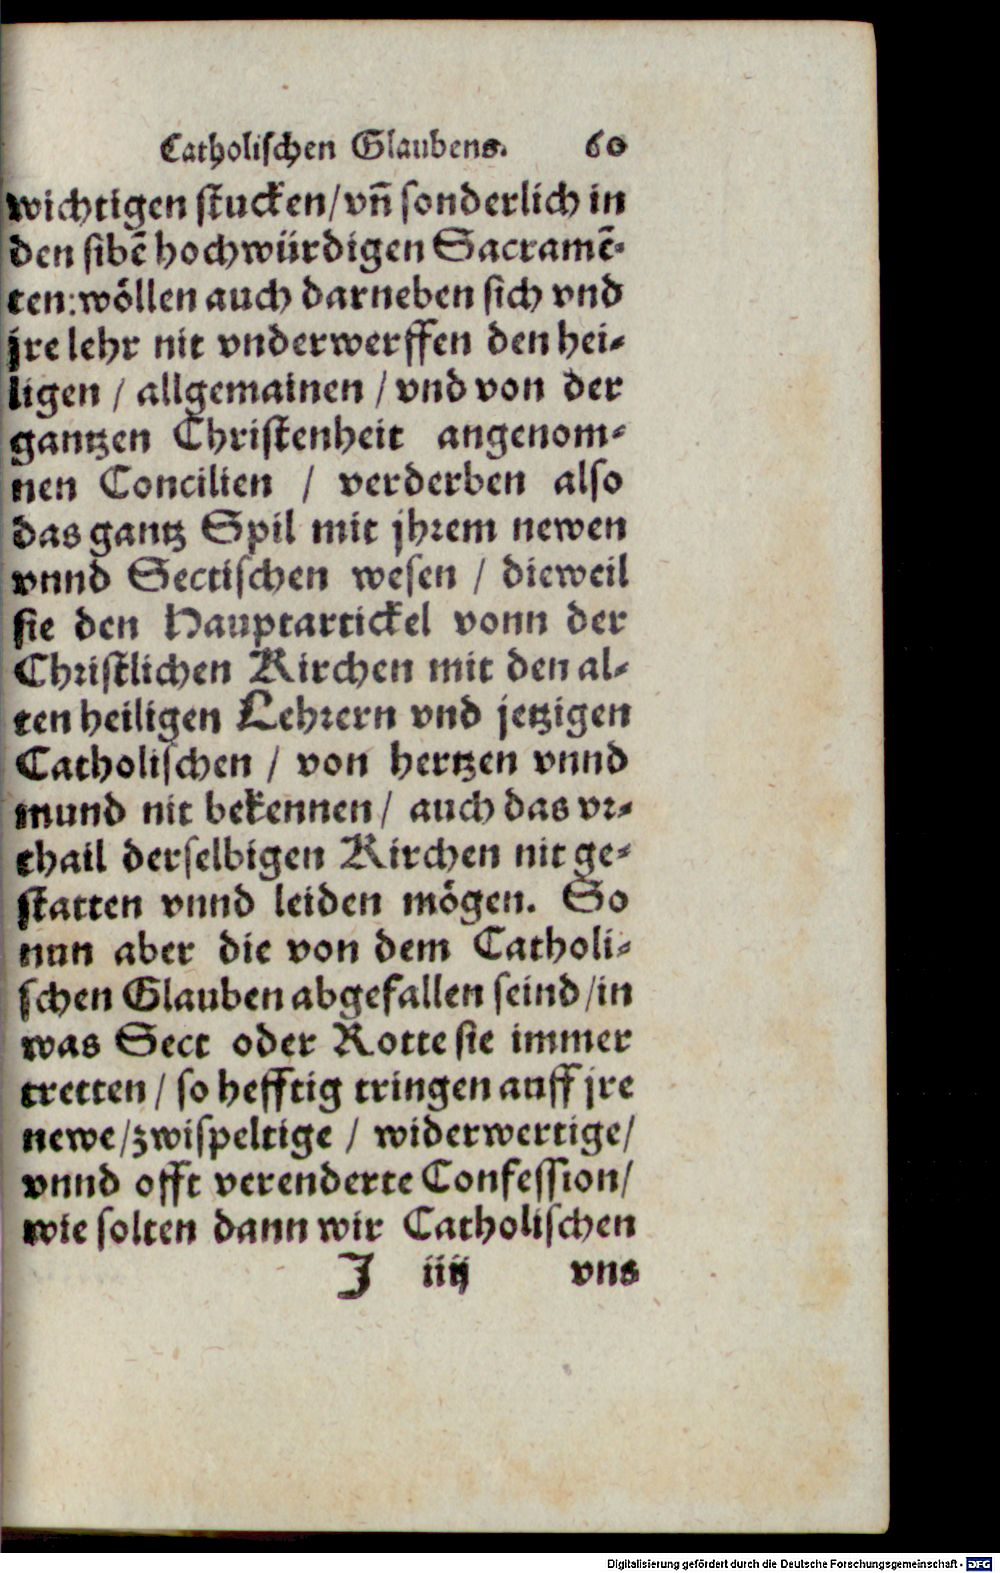 Catholischen Glaubens. 60
wichtigen stucken/vñ sonderlich in
den sibẽ hochwürdigen Sacramẽ-
ten: wöllen auch darneben sich vnd
jre lehr nit vnderwerffen den hei-
ligen / allgemainen / vnd von der
gantzen Christenheit angenom-
nen Concilien / verderben also
das gantz Spil mit jhrem newen
vnnd Sectischen wesen / dieweil
sie den Hauptartickel vonn der
Christlichen Kirchen mit den al-
ten heiligen Lehrern vnd jetzigen
Catholischen / von hertzen vnnd
mund nit bekennen / auch das vr-
thail derselbigen Kirchen nit ge-
statten vnnd leiden mögen. So
nun aber die von dem Catholi-
schen Glauben abgefallen seind/in
was Sect oder Rotte sie immer
tretten / so hefftig tringen auff jre
newe/zwispeltige / widerwertige/
vnnd offt verenderte Confession/
wie solten dann wir Catholischen
J iiij vns
Digitalisierung gefördert durch die Deutsche Forschungsgemeinschaft - DFG